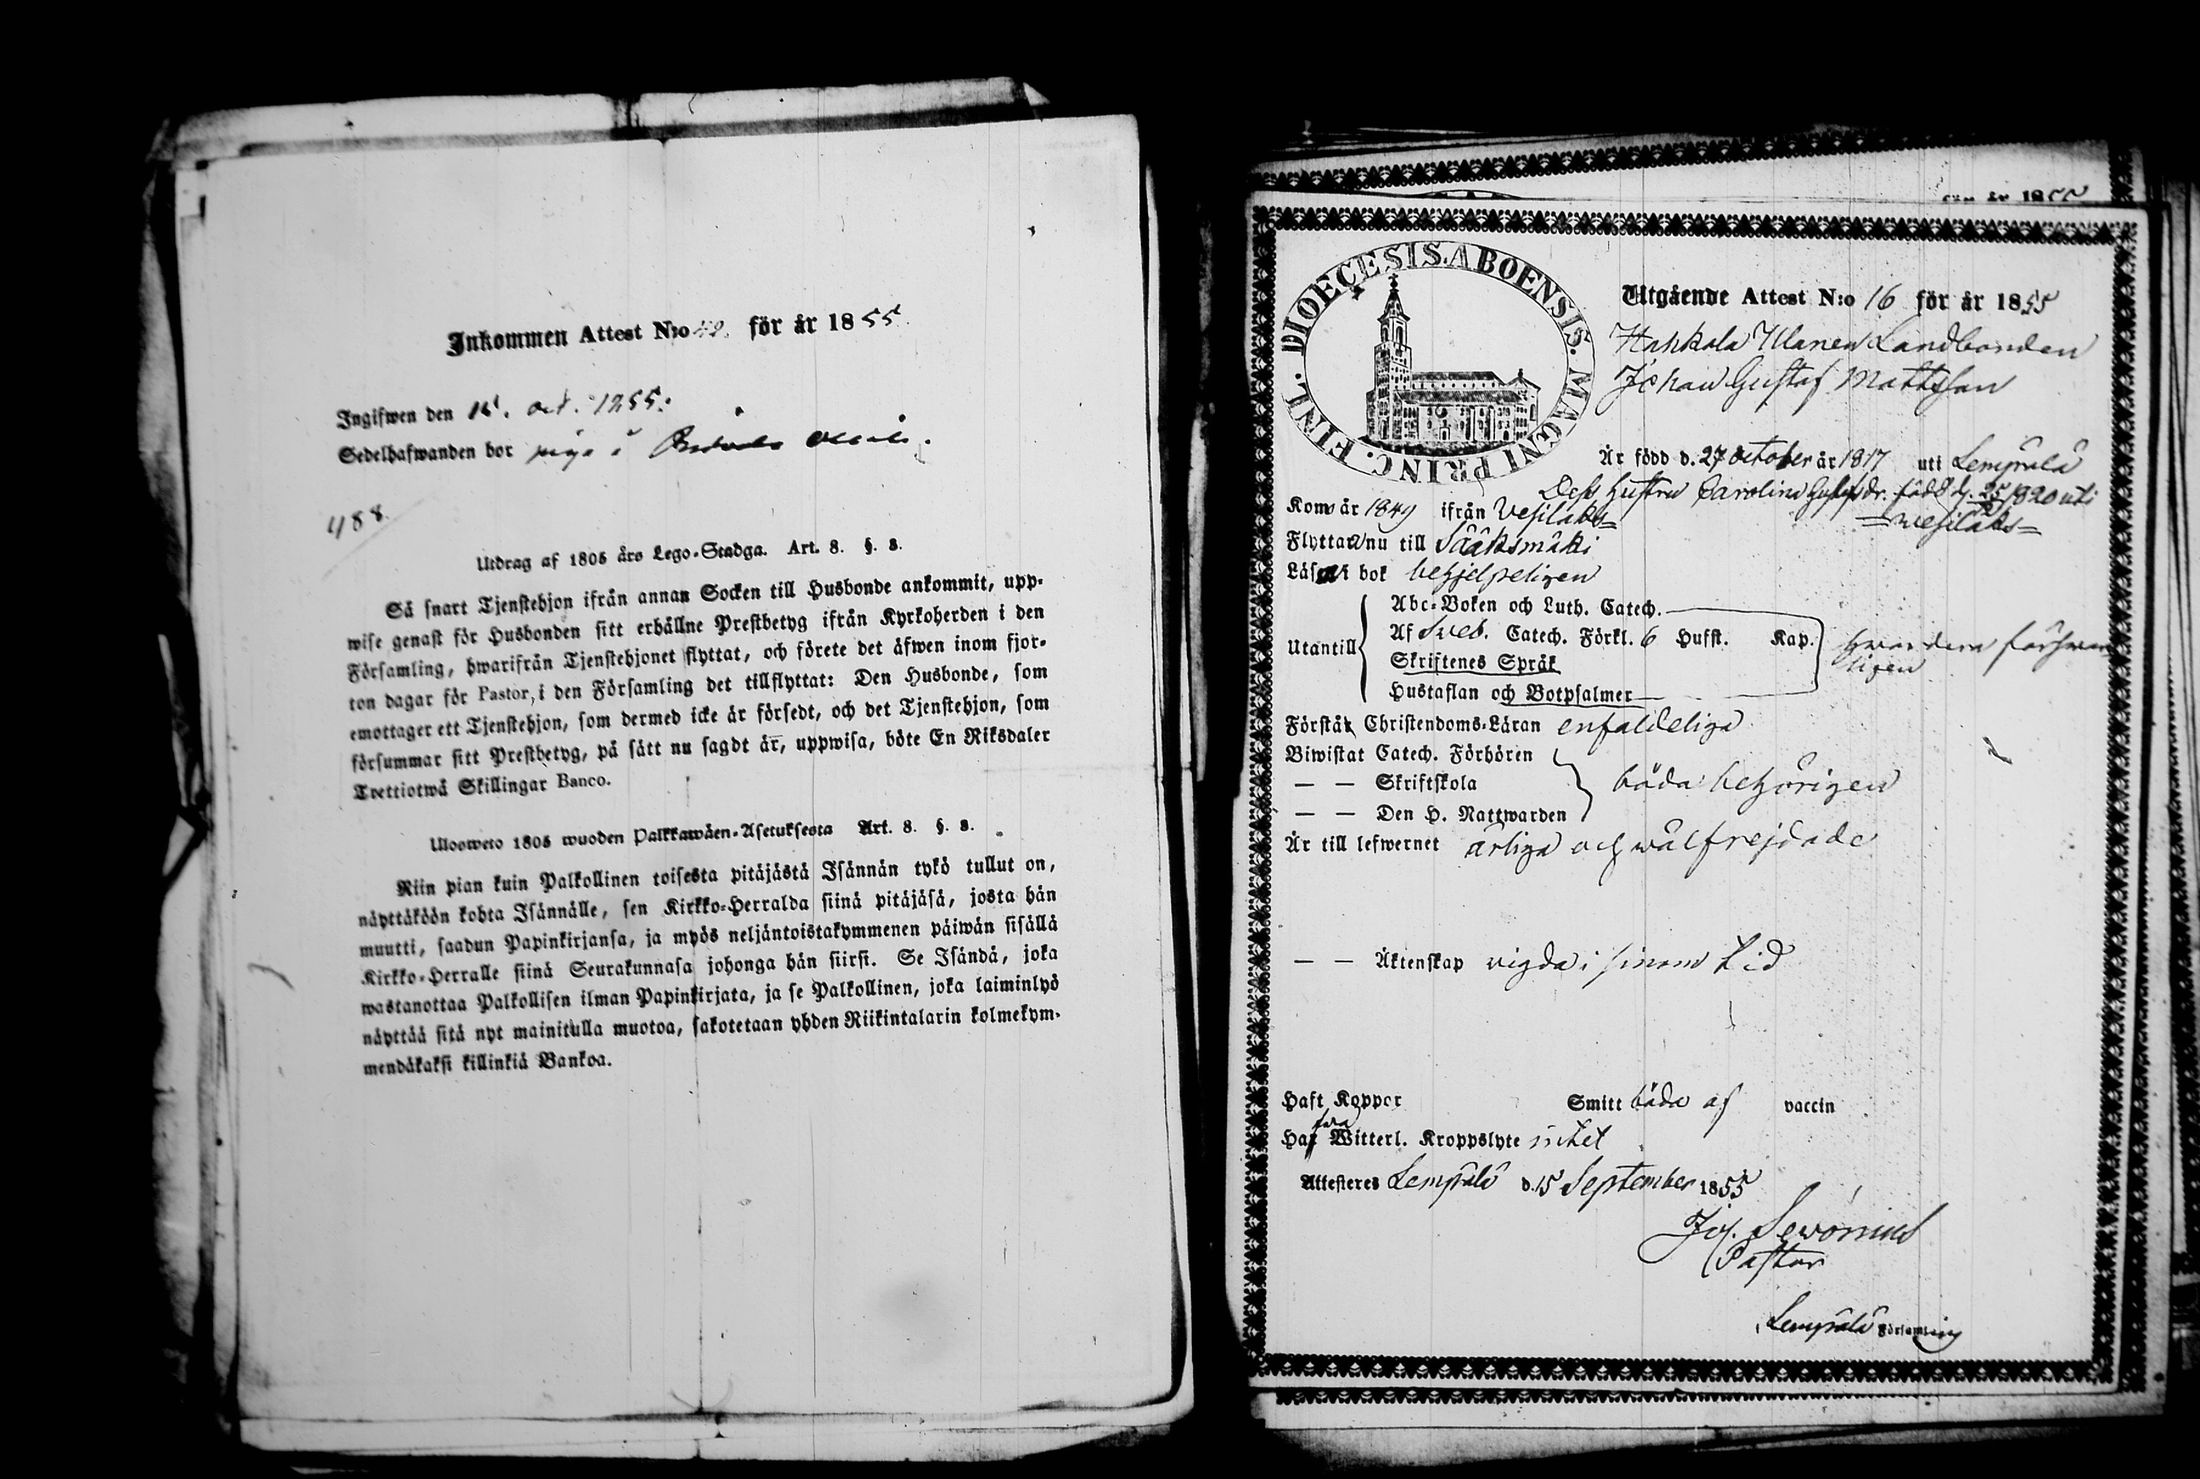 Inkommen Attest N:o för år 1855.
Ingifwen den 15. oct. 1855.
Sedelhafwanden bor piga i
488.
Utdrag af 1805 års Lego-Stadga. Art. 8. §. 8.
Så snart Tjenstehjon ifrån annan Socken till Husbonde ankommit, upp-
wise genast för Husbonden sitt erhållne Prestbetyg ifrån Kyrkoherden i den
Församling, hwarifrån Tjenstehjonet flyttat, och förete det äfwen inom fjor-
ton dagar för Pastor, i den Församling det tillflyttat: Den Husbonde, som
emottager ett Tjenstehjon, som dermed icke är försedt, och det Tjenstehjon, som
försummar sitt Prestbetyg, på sätt nu sagdt är, uppwisa, böte En Riksdaler
Trettiotwå Skillingar Banco.
Ulosweto 1805 wuoden Palkkawäen-Asetuksesta Art. 8. §. 8.
Niin pian kuin Palkollinen toisesta pitäjästä Isännän tykö tullut on,
näyttäköön kohta Isännälle, sen Kirkko-Herralda siinä pitäjäsä, josta hän
muutti, saadun Papinkirjansa, ja myös neljäntoistakymmenen päiwän sisällä
Kirkko-Herralle siinä Seurakunnasa johonga hän siirsi. Se Isändä, joka
wastanottaa Palkollisen ilman Papinkirjata, ja se Palkollinen, joka laiminlyö
näyttää sitä nyt mainitulla muotoa, sakotetaan yhden Riikintalarin kolmekym-
mendäkaksi killinkiä Bankoa.
för år 1855
DIOECESIS. ABOENSIS. MAGNI PRINC. FINL.
Utgående Attest N:o 16 för år 1855
Hahkala Landbonden
Johan Gustaf Mattsson
Är född d. 27 October år 1817 uti Lempälä
Dess hustru Carolina Gustafsdr. född d. 1820 uti
Wesilaks
Kom år 1849 ifrån Vesilaks
Flyttar nu till Sääksmäki
Läser i bok behjelpeligen
Utantill
Abc-Boken och Luth. Catech.
Af Sveb. Catech. Förkl. 6 Hufst. Kap.
Skriftenes Språk
Hustaflan och Botpsalmer
Förstår Christendoms-Läran enfaldeliga
Biwistat Catech. Förhören
— — Skriftskola båda behörigen
— — Den H. Nattwarden
Är till lefwernet ärliga och wälfrejdade
— — Äktenskap vigda i sinom tid
Haft Koppor Smitt båda af vaccin
Haf Witterl. Kroppslyte intet
Attesteres Lempälä d. 15 September 1855
Pastor
Lempälä Församling